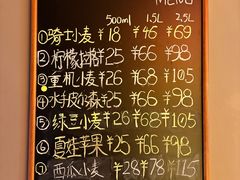 MENU
500ml 1.5L 2.5L
①骑士小麦 ¥18 ¥46 ¥69
②柠檬拉格 ¥25 ¥66 ¥98
③重机小麦 ¥26 ¥68 ¥105
④水手皮尔森 ¥25 ¥66 ¥98
⑤绿豆小麦 ¥26 ¥68 ¥105
⑥夏洼苹果 ¥25 ¥66 ¥98
⑦西瓜小麦 ¥28 ¥78 ¥115